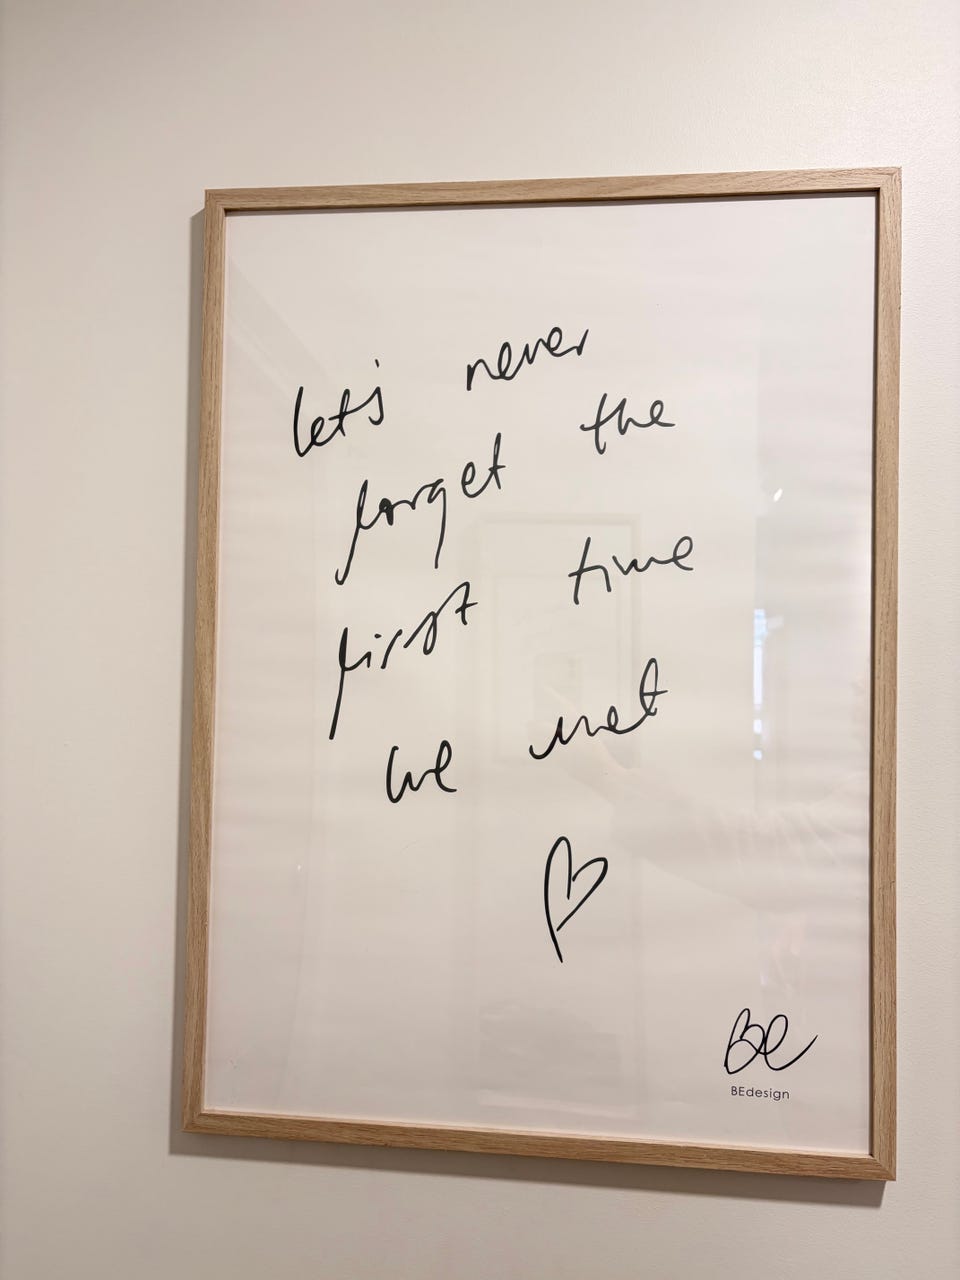 let's never
forget the
first time
we met
Be
BEdesign